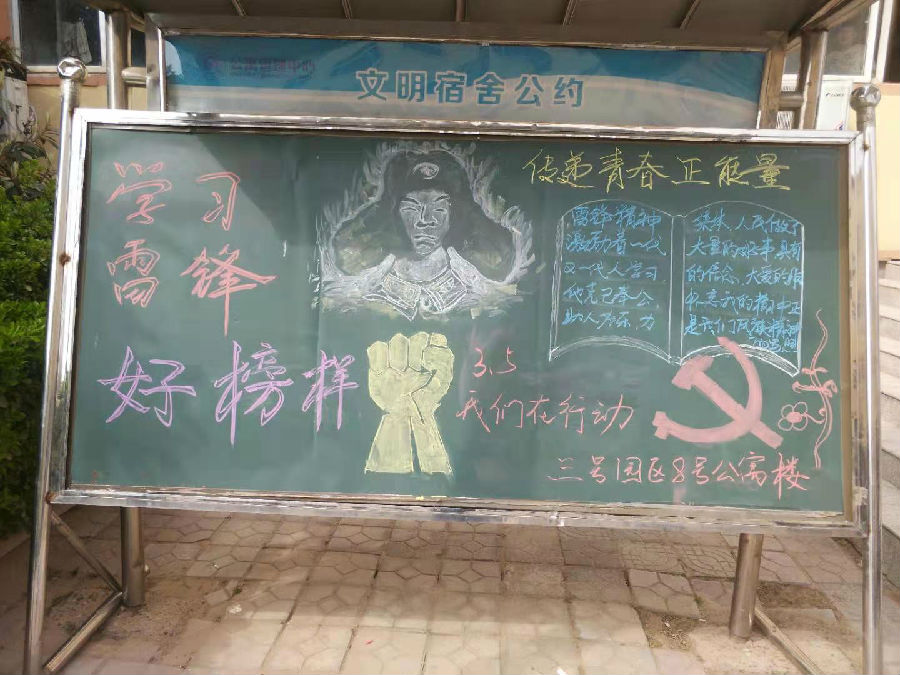 文明宿舍公约
学习
雷锋
好榜样
传递青春正能量
雷锋精神
激励着一代
又一代人学习
他克己奉公,
助人为乐,为
集体,人民做了
大量的好事具有
的信念,大爱的胸
是我们民族精神
3.5
我们在行动
三号园区8号公寓楼